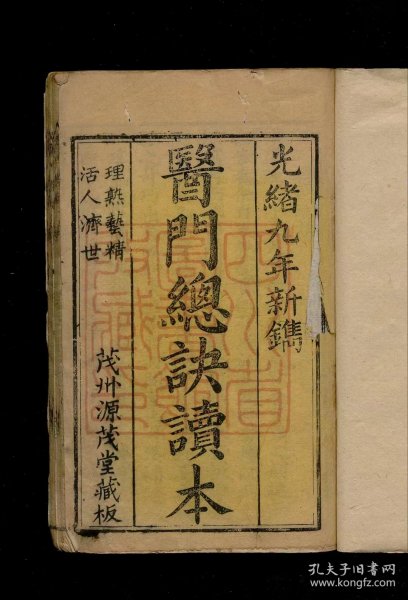 光緒九年新鐫
醫門總訣讀本
理熟藝精
活人濟世
茂州源茂堂藏板
孔夫子旧书网
www.kongfz.com